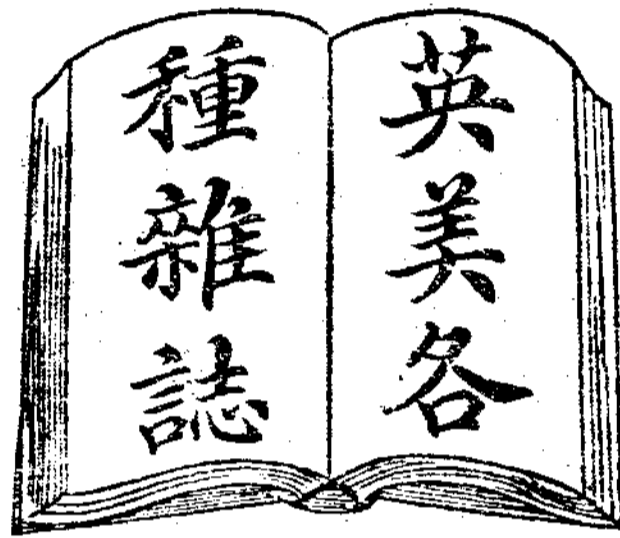 英美各
種雜誌